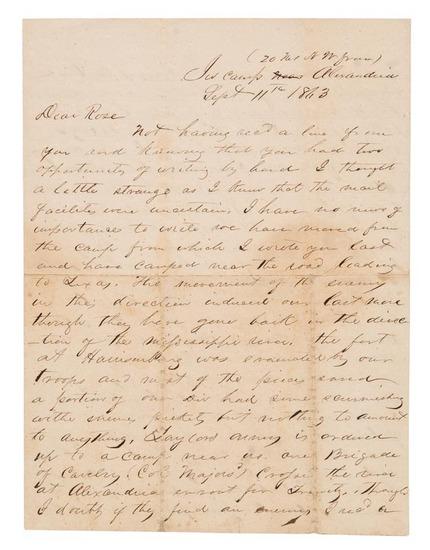 (20 Mls N W from)
In camp Alexandria
Sept 11th 1863
Dear Rose
Not having rec'd a line from
you and knowing that you had two
opportunitys of writing by hand I thought
a little strange as I knew that the mail
facilities were uncertain. I have no news of
importance to write we have moved from
the camp from which I wrote you last
and have camped near the road leading
to Texas. The movement of the enemy
in this direction induced our last move
though they have gone back in the direc
-tion of the Mississippi river. The fort
at Harrisonburg was evacuated by our
troops and most of the pieces saved
a portion of our Div had some scurmishing
withe enemies pickets but nothing to amount
to anything, army is ordered
up to a camp near us. one Brigade
of Cavelry (Col Majors) Crossed the river
at Alexandria enrout for Trinity, though
I doubt if they find an enemy I rec'd a